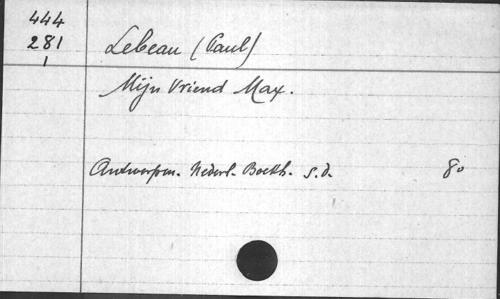 444
281 Lebeau (Paul)
1
Mijn Vriend Max.
Antwerpen. Nederl. Boekh. s.d. 8o